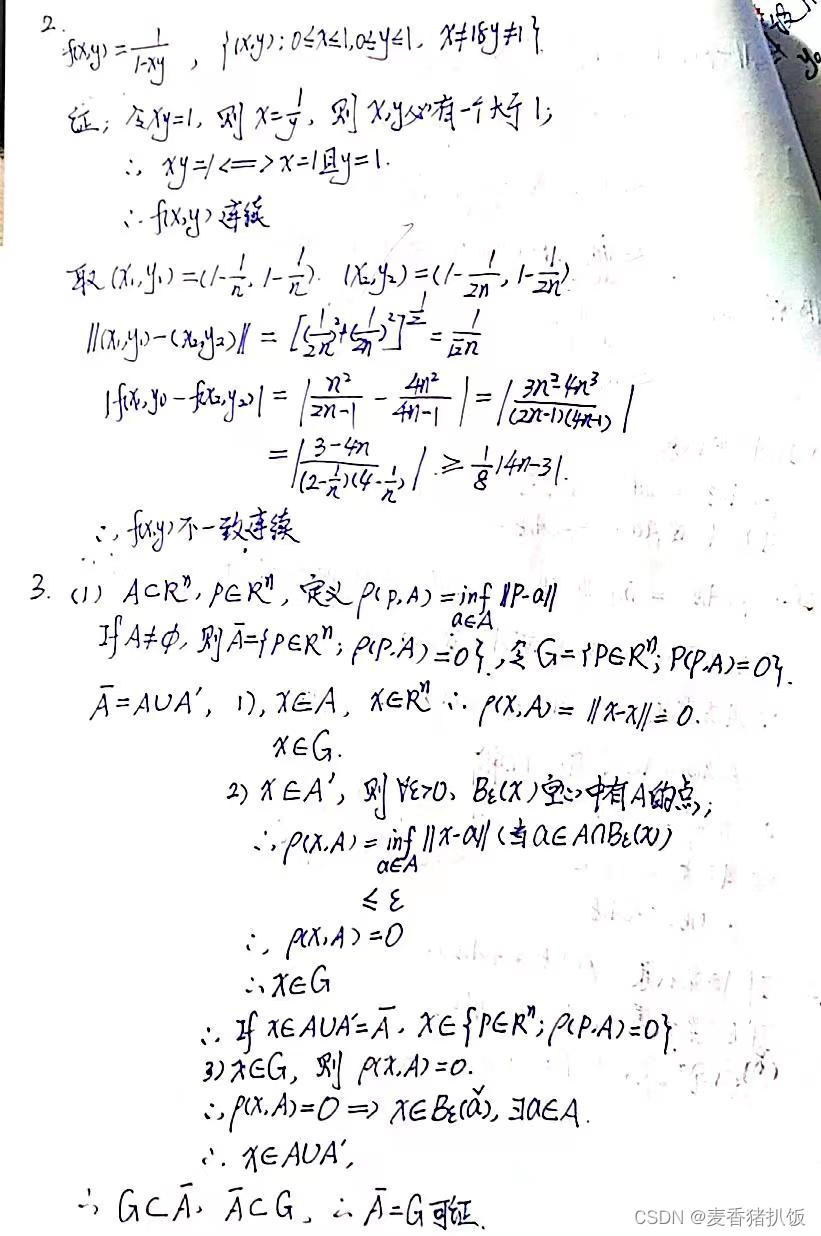 2.
f(x,y)=1/(1-xy), {(x,y); 0≤x≤1, 0≤y≤1, x≠1且y≠1}.
证: 令xy=1, 则 x=1/y, 则 x,y必有一个大于1;
∴ xy=1 <=> x=1且y=1.
∴ f(x,y) 连续
取 (x₁,y₁)=(1-1/n, 1-1/n). (x₂,y₂)=(1-1/2n, 1-1/2n)
||(x₁,y₁)-(x₂,y₂)|| = [(1/2n)²+(1/2n)²]^(1/2) = 1/(√2n)
|f(x₁,y₁)-f(x₂,y₂)| = |n²/(2n-1) - 4n²/(4n-1)| = |(3n²-4n³)/((2n-1)(4n-1))|
= |(3-4n)/((2-1/n)(4-1/n))| ≥ 1/8|4n-3|.
∴ f(x,y)不一致连续
3. (1) A⊂Rⁿ, P∈Rⁿ, 定义 ρ(p,A)=inf_{a∈A} ||P-a||
If A≠φ, 则 Ā={P∈Rⁿ; ρ(P,A)=0}, 令 G={P∈Rⁿ; P(P,A)=0}.
Ā=A∪A′, 1), x∈A, x∈Rⁿ ∴ ρ(x,A)=||x-x||=0.
x∈G.
2) x∈A′, 则 ∀ε>0, Bε(x)空心中有A的点;
∴ ρ(x,A)=inf_{a∈A} ||x-a|| (当a∈A∩Bε(x))
≤ ε
∴ ρ(x,A)=0
∴ x∈G
∴ If x∈A∪A′=Ā, x∈{P∈Rⁿ; ρ(P,A)=0}.
3) x∈G, 则 ρ(x,A)=0.
∴ ρ(x,A)=0 => x∈Bε(ǎ), ∃a∈A.
∴ x∈A∪A′,
∴ G⊂Ā, Ā⊂G, ∴ Ā=G可证.
CSDN @麦香猪扒饭